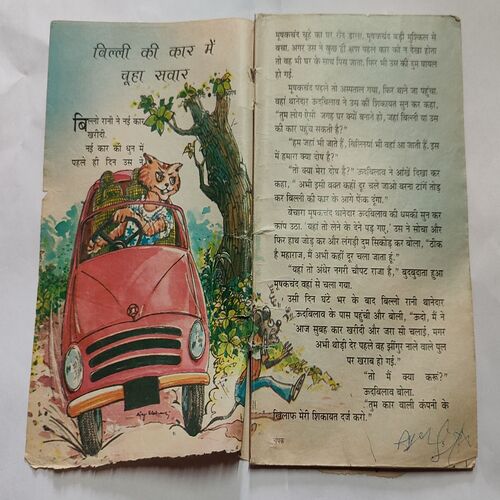 बिल्ली की कार में
चूहा सवार
बिल्लो रानी ने नई कार
खरीदी.
नई कार की धुन में
पहले ही दिन उस ने
मूषकचंद चूहे का घर रौंद डाला. मूषकचंद बड़ी मुश्किल से
बचा. अगर उस ने कुछ ही क्षण पहले कार को न देखा होता
तो वह भी घर के साथ पिस जाता. फिर भी उस की दुम घायल
हो गई.
मूषकचंद पहले तो अस्पताल गया, फिर थाने जा पहुंचा.
वहां थानेदार ऊदबिलाव ने उस की शिकायत सुन कर कहा,
“तुम लोग ऐसी जगह घर क्यों बनाते हो, जहां बिल्ली या उस
की कार पहुंच सकती है?”
“हम जहां भी जाते हैं, बिल्लियां भी वहां आ जाती हैं. इस
में हमारा क्या दोष है?”
“तो क्या मेरा दोष है?” ऊदबिलाव ने आंखें दिखा कर
कहा, “अभी इसी वक्त कहीं दूर चले जाओ वरना टांगें तोड़
कर बिल्ली की कार के आगे फेंक दूंगा.”
बेचारा मूषकचंद थानेदार ऊदबिलाव की धमकी सुन कर
कांप उठा. 'यहां तो लेने के देने पड़ गए,' उस ने सोचा और
फिर हाथ जोड़ कर और लंगड़ी दुम सिकोड़ कर बोला, “ठीक
है महाराज, मैं अभी कहीं दूर चला जाता हूं.”
“यहां तो अंधेर नगरी चौपट राजा है,” बुदबुदाता हुआ
मूषकचंद वहां से चला गया.
उसी दिन घंटे भर के बाद बिल्लो रानी थानेदार
ऊदबिलाव के पास पहुंची और बोली, “ऊदो, मैं ने
आज सुबह कार खरीदी और जरा सी चलाई. मगर
अभी थोड़ी देर पहले वह झींगुर नाले वाले पुल
पर खराब हो गई.”
“तो मैं क्या करूं?”
ऊदबिलाव बोला.
“तुम कार वाली कंपनी के
खिलाफ मेरी शिकायत दर्ज करो.”
चंपक